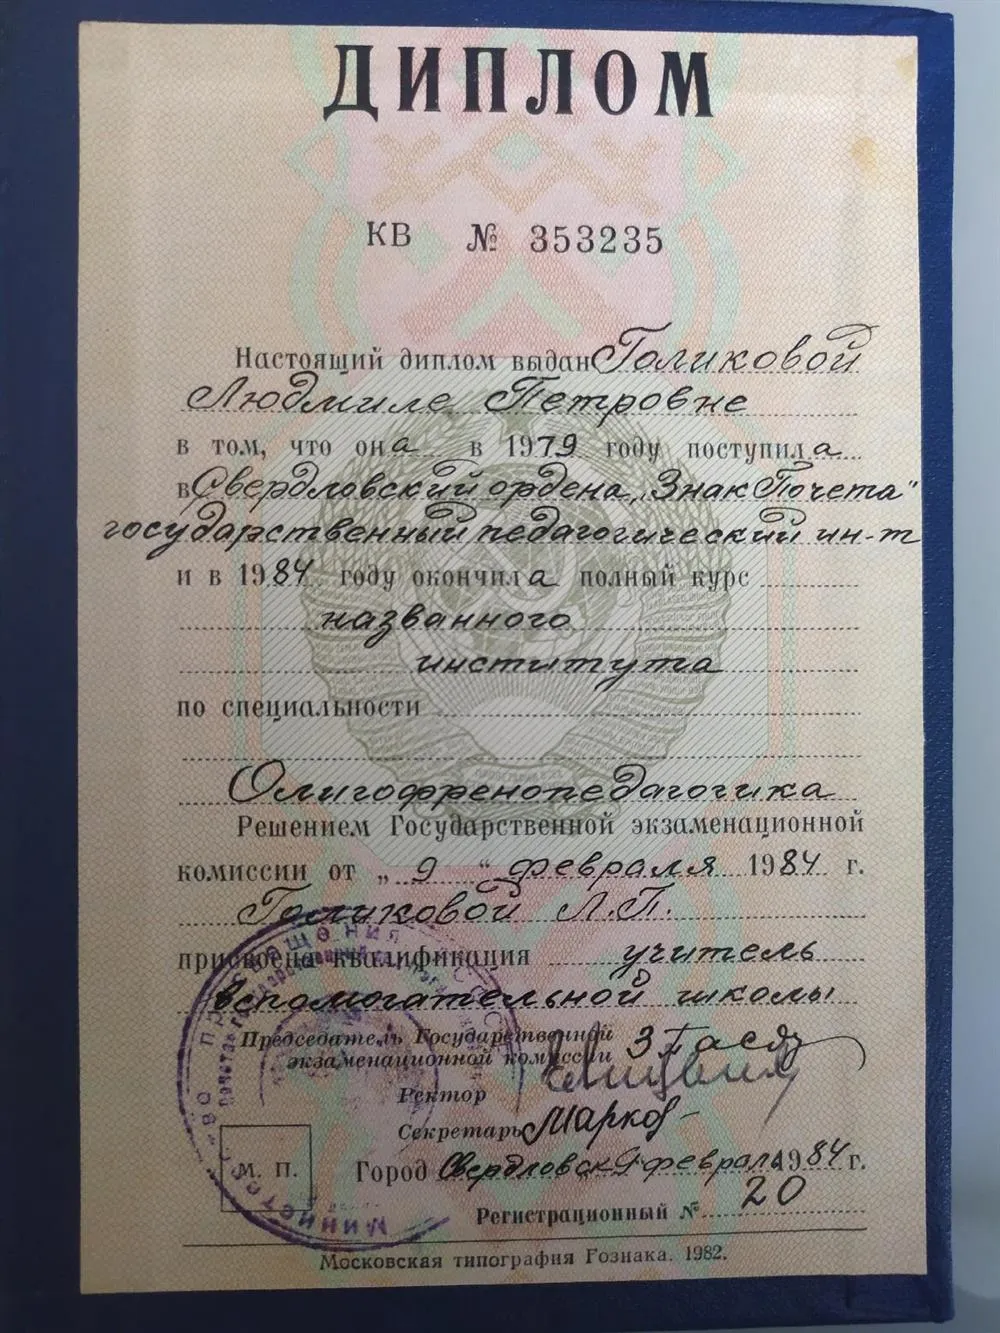 ДИПЛОМ
КВ № 353235
Настоящий диплом выдан Голиковой
Людмиле Петровне
в том, что она в 1979 году поступила
в Свердловский ордена „Знак Почета"
государственный педагогический ин-т
и в 1984 году окончила полный курс
названного
института
по специальности
Олигофренопедагогика
Решением Государственной экзаменационной
комиссии от „9" февраля 1984 г.
Голиковой Л.П.
присвоена квалификация учитель
вспомогательной школы
Председатель Государственной
экзаменационной комиссии
Ректор
Секретарь Марков
М. П.
Город Свердловск 9 февраля 1984 г.
Регистрационный № 20
Московская типография Гознака. 1982.